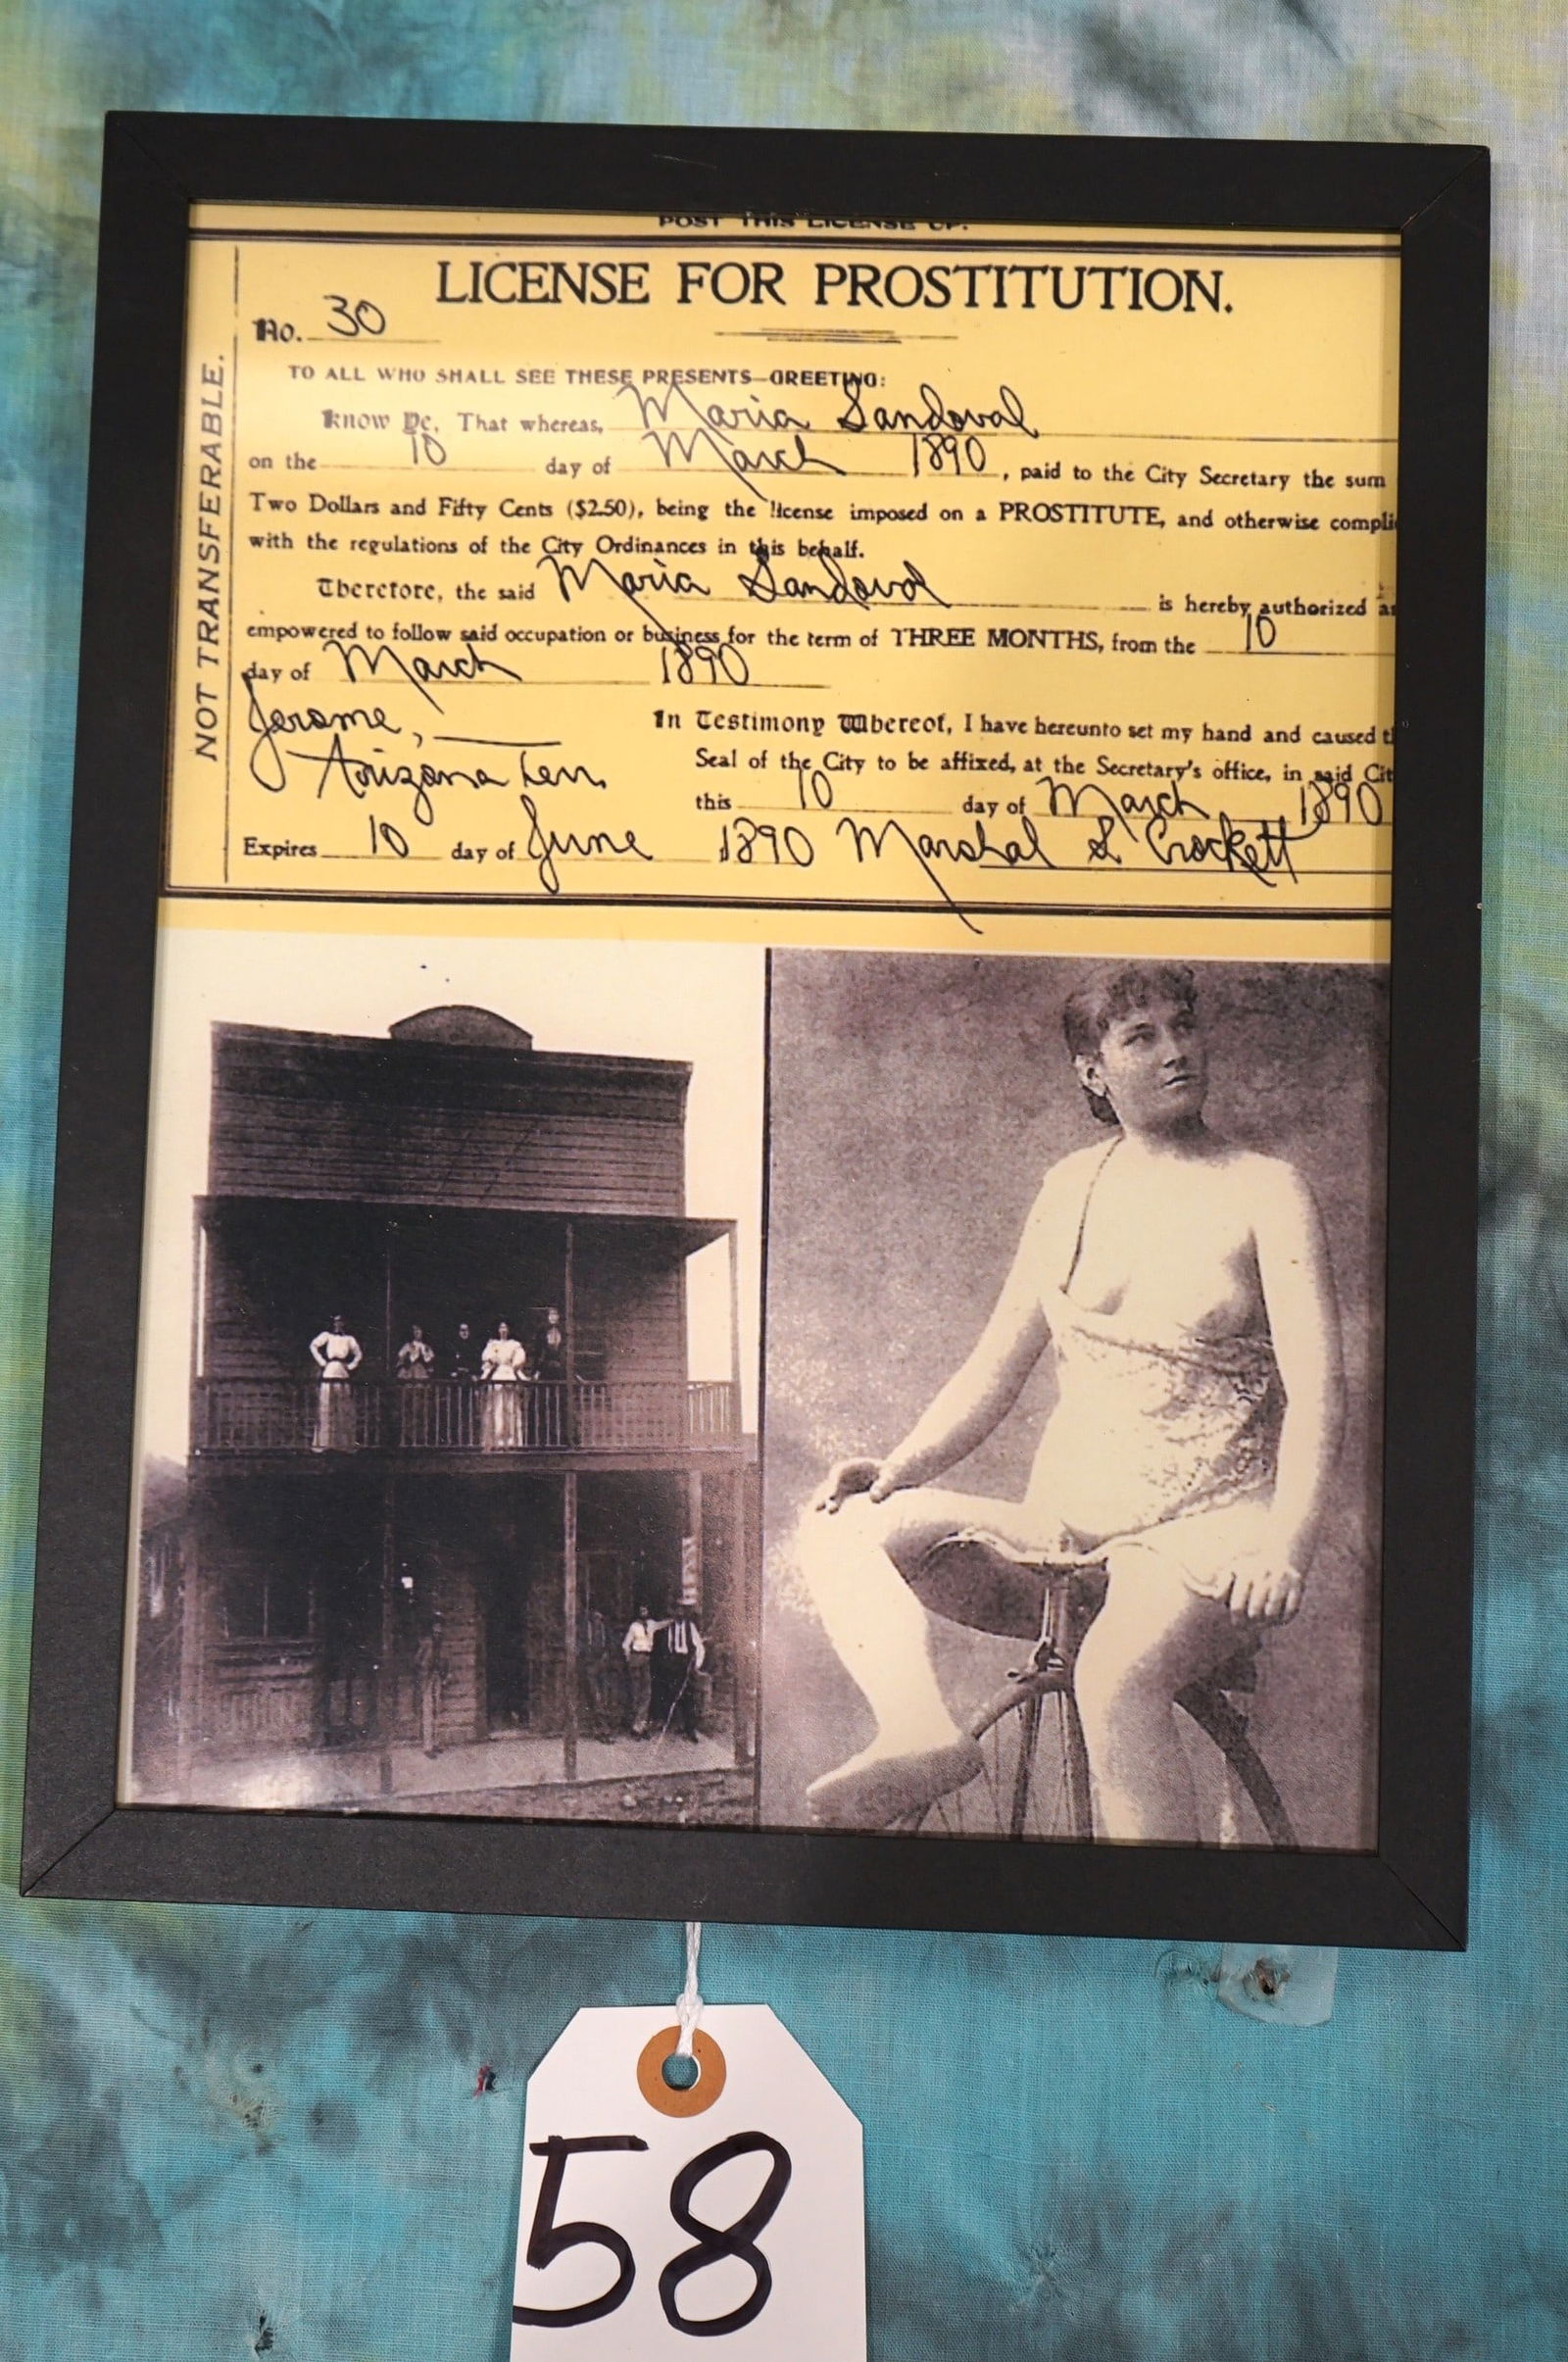 POST THIS LICENSE UP.
LICENSE FOR PROSTITUTION.
No. 30
NOT TRANSFERABLE.
TO ALL WHO SHALL SEE THESE PRESENTS—GREETING:
Know Ye, That whereas, Maria Sandoval
on the 10 day of March 1890, paid to the City Secretary the sum
Two Dollars and Fifty Cents ($2.50), being the license imposed on a PROSTITUTE, and otherwise compli
with the regulations of the City Ordinances in this behalf.
Therefore, the said Maria Sandoval is hereby authorized a
empowered to follow said occupation or business for the term of THREE MONTHS, from the 10
day of March 1890
Jerome,
Arizona Terr.
In Testimony Whereof, I have hereunto set my hand and caused t
Seal of the City to be affixed, at the Secretary's office, in said Cit
this 10 day of March 1890
Expires 10 day of June 1890 Marshal S. Crockett
58